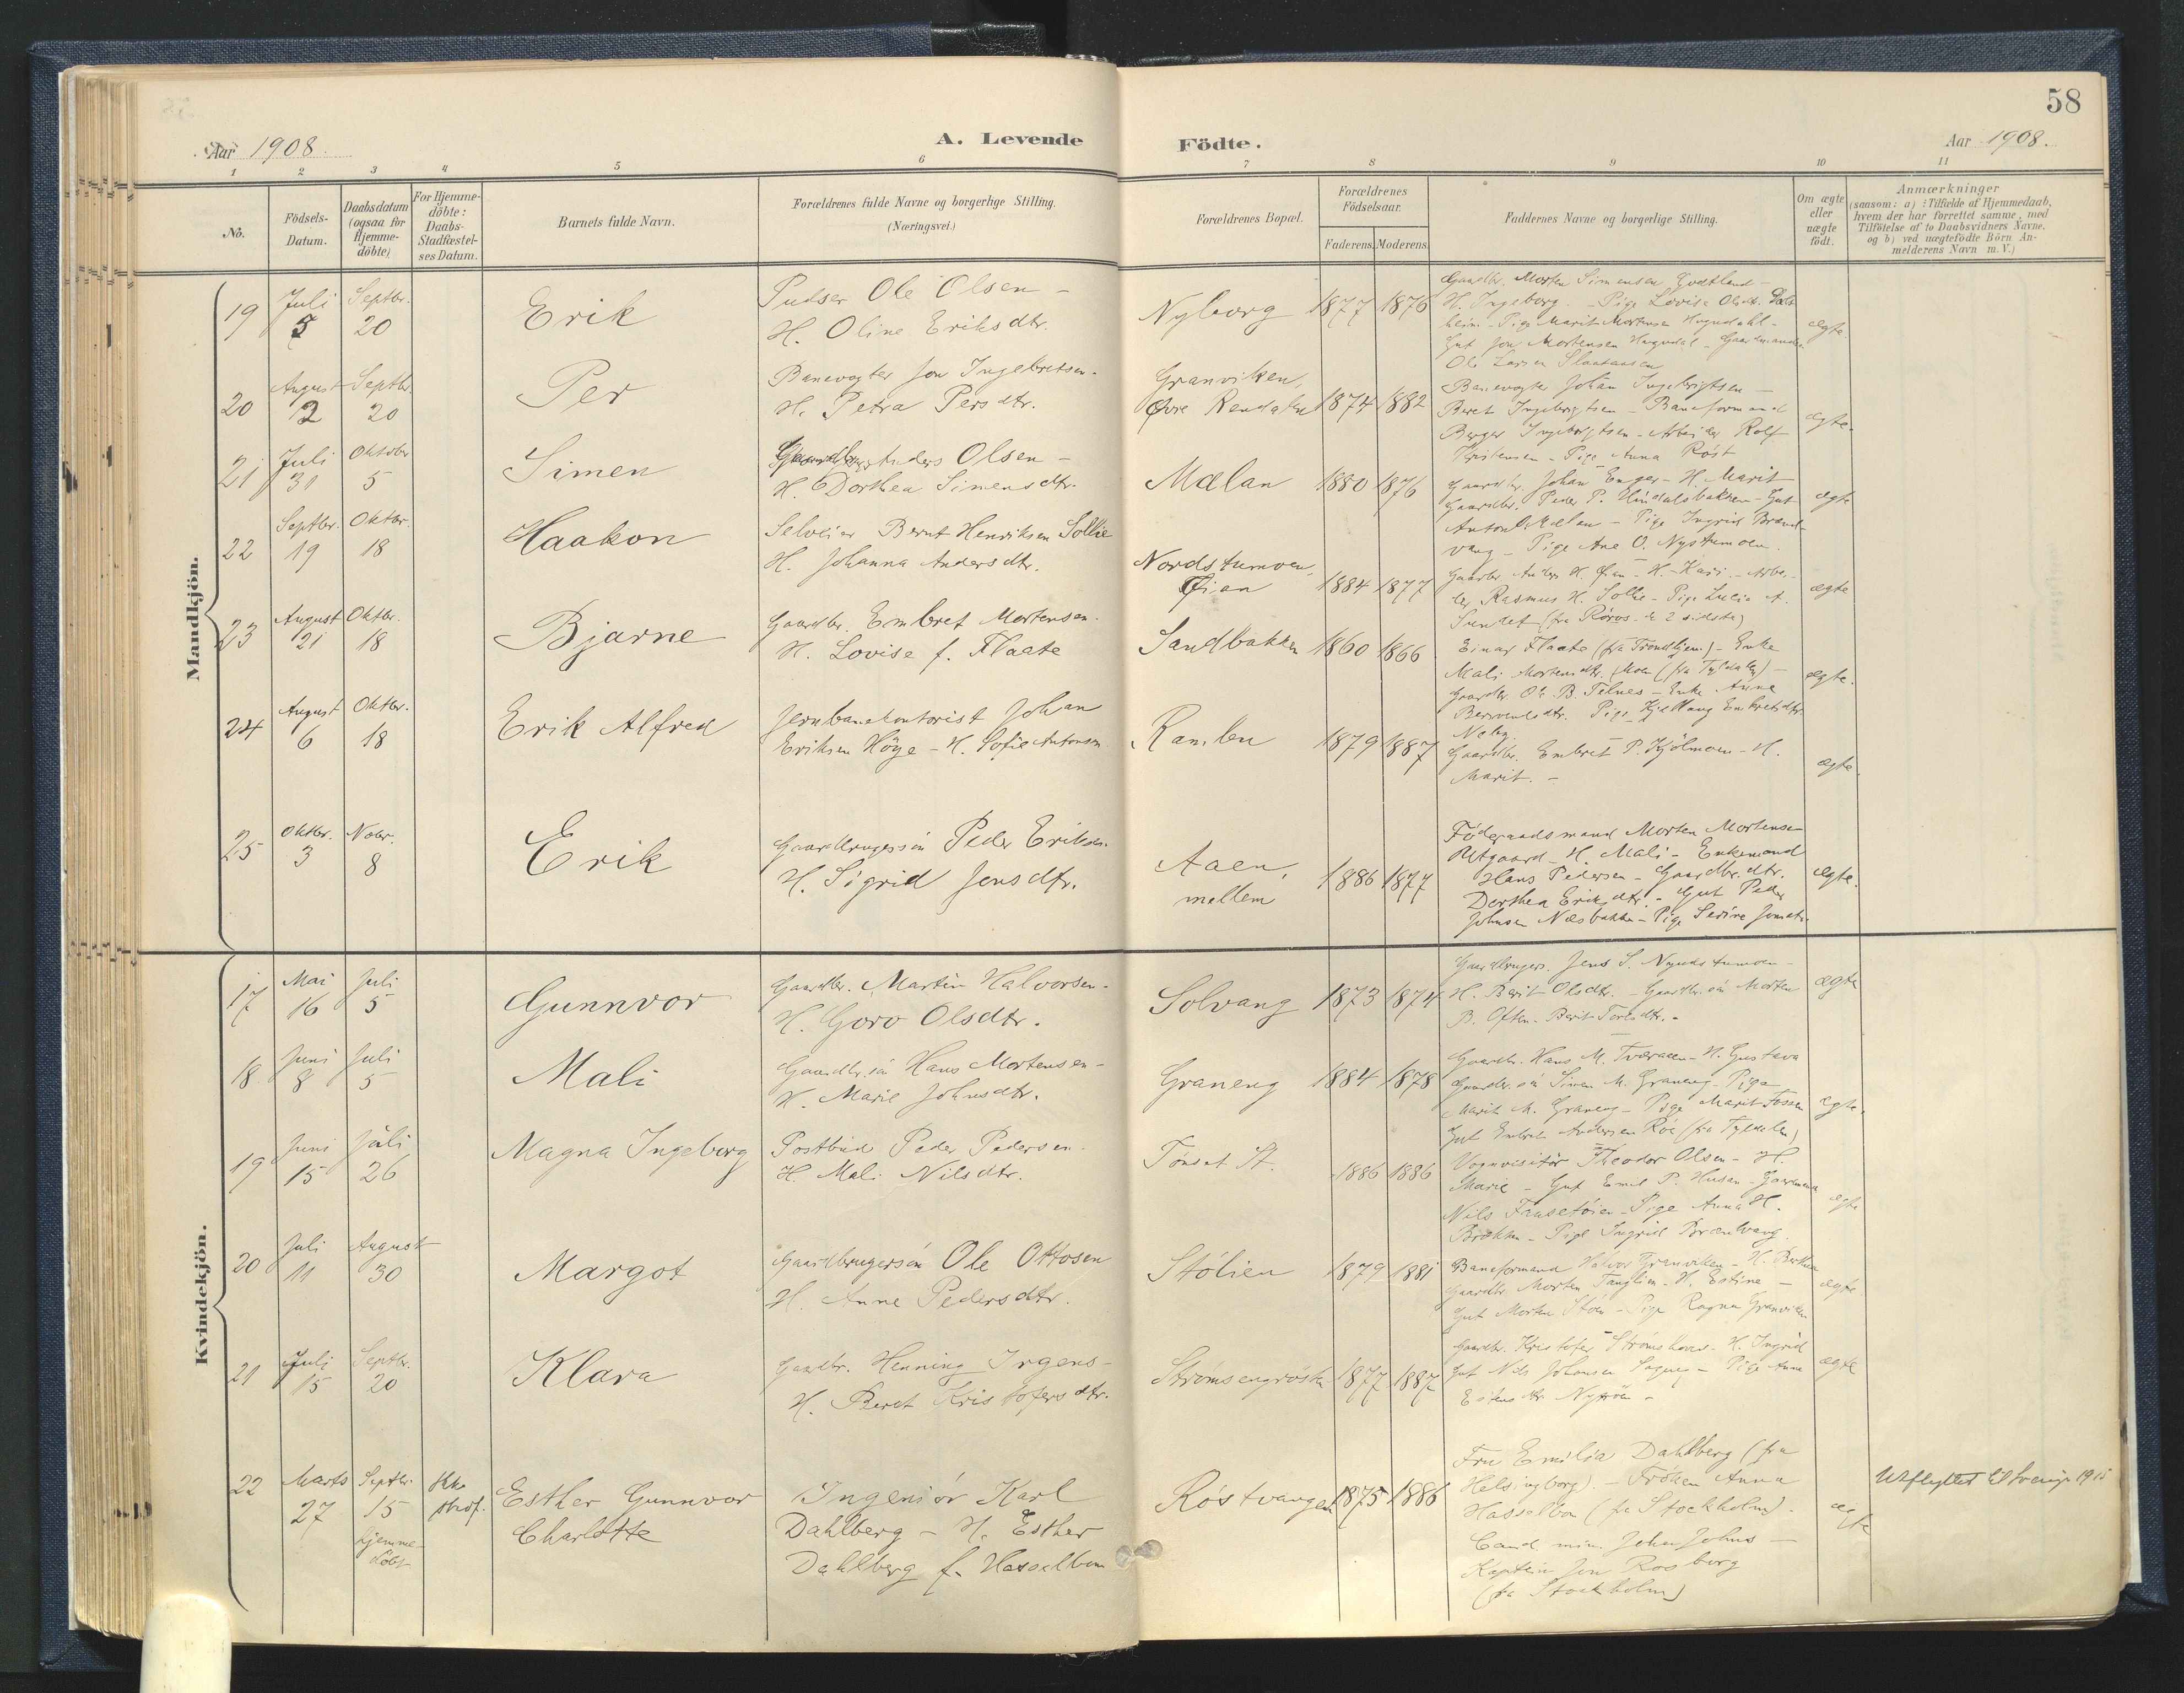 58
Aar 1908.
A. Levende
Födte.
Aar 1908.
1 2 3 4 5 6 7 8 9 10 11
No.
Födsels-
Datum.
Daabsdatum
(ogsaa for
Hjemme-
döbte)
For Hjemme-
döbte:
Daabs-
Stadfæstel-
ses Datum.
Barnets fulde Navn.
Forældrenes fulde Navne og borgerlige Stilling.
(Næringsvei.)
Forældrenes Bopæl.
Forældrenes
Födselsaar.
Faderens.
Moderens.
Faddernes Navne og borgerlige Stilling.
Om ægte
eller
uægte
født.
Anmærkninger
(saasom: a) : Tilfælde af Hjemmedaab,
hvem der har forrettet samme, med
Tilföielse af to Daabsvidners Navne,
og b) ved uægtefödte Börn An-
melderens Navn m. V.)
Mandkjön.
19
Juli
5
Septbr.
20
Erik
Pudser Ole Olsen -
H. Oline Eriksdtr.
Nyborg
1877
1876
Gaardbr. Morten Simensen
H. Ingeborg. - Pige Lovise
Pige Marit Mortensen
Gut Jon Mortensen
Ole Larsen
ægte.
20
August
2
Septbr.
20
Per
Banevogter Jon Ingebretsen -
H. Petra Persdtr.
Granviken,
Øvre Rendalen
1874
1882
Banevogter Johan Ingebrigtsen -
Beret Ingebrigtsen - Baneformand
Berger Ingebrigtsen - Arbeider Rolf
Kristensen - Pige Anna Röst
ægte.
21
Juli
31
Oktober
5
Simen
Anders Olsen -
H. Dorthea Simensdtr.
Mælan
1880
1876
Gaardbr. Johan Enger - H. Marit
Gaardbr. Peder P. - Gut
Anton Mælan - Pige Ingrid Brænd-
vang - Pige Ane O. Nystumoen.
ægte
22
Septbr.
19
Oktbr.
18
Haakon
Selveier Bernt Henriksen Sollie
H. Johanna Andersdtr.
Nordstumoen,
Øian
1884
1877
Gaardbr. Anders H. Øian - H. Kari. - Arbei-
der Rasmus H. Sollie - Pige Lucia A.
Sundet (fra Röros - de 2 sidste)
ægte
23
August
21
Oktbr.
18
Bjarne
Gaardbr. Embret Mortensen -
H. Lovise f. Flaate
Sandbakken
1860
1866
Einar Flaate (fra Trondhjem) - Enke
Mali Mortensdtr. Moen (fra Tyldalen) -
Gaardbr. Ole B. Telnes - Enke Anne
Embretsdtr.
ægte.
24
August
6
Oktbr.
18
Erik Alfred
Jernbanekontorist Johan
Eriksen Höye - H. Sofie Antonsen
Ramlen
1879
1887
Gaardbr. Embret P. Kjölmoen - H.
Marit. -
ægte.
25
Oktbr.
3
Novbr.
8
Erik
Gaardbrugersön Peder Eriksen.
H. Sigrid Jensdtr.
Aaen,
mellem
1886
1877
Födegaadsmand Morten Mortensen
Utgaard - H. Mali - Enkemand
Hans Pedersen - Gaardbr.dtr.
Dorthea Eriksdtr. - Gut Peder
Johnsen Næsbakken - Pige Serine Jonsdtr.
ægte.
Kvindekjön.
17
Mai
16
Juli
5
Gunnvor
Gaardbr. Martin Halvorsen -
H. Goro Olsdtr.
Solvang
1873
1874
Gaardbruger. Jens S. Nystumoen -
H. Berit Olsdtr. - Gaardbr.sön Morten
ægte
18
Juni
8
Juli
5
Mali
Gaardbr.sön Hans Mortensen -
H. Marie Johnsdtr.
Graneng
1884
1878
Gaardbr. Hans M. Tværaaen - H. Gustava
Gaardbr.sön Simen M. Graneng - Pige
Marit M. Graneng - Pige Marit Fossen
Gut Embret Andersen Roe (fra Tyldalen)
ægte.
19
Juni
15
Juli
26
Magna Ingeborg
Postbud Peder Pedersen -
H. Mali Nilsdtr.
Tönset St.
1886
1886
Vognvisitör Theodor Olsen - H.
Marie - Gut Emil P. Husan -
Nils - Pige Anna H.
Pige Ingrid Brændvang.
ægte
20
Juli
11
August
30
Margot
Gaardbrugersön Ole Ottosen
H. Anne Pedersdtr.
Stölien
1879
1881
Baneformand Halvor Granviken - H. Berthea
Gaardbr. Morten Tanglien - H. Estine -
Gut Morten Stöen - Pige Ragna Granviken
ægte
21
Juli
15
Septbr.
20
Klara
Gaardbr. Henning Irgens -
H. Beret Kristofersdtr.
1877
1887
Gaardbr. Kristofer - H. Ingrid
Gut Nils Johansen - Pige Anne
Estensdtr. Nytröen -
ægte
22
Marts
27
Septbr.
15
hjemme-
döbt
Ikke
stadf.
Esther Gunnvor
Charlotte
Ingeniör Karl
Dahlberg - H. Esther
Dahlberg f. Hasselbom
Röstvangen
1875
1886
Fru Emilia Dahlberg (fra
Helsingborg). - Fröken Anna
Hasselbom (fra Stockholm) -
Cand. min. Johan Johns -
Kaptein Jon Rosborg
(fra Stockholm)
ægte
Utflyttet til Sverige 1915